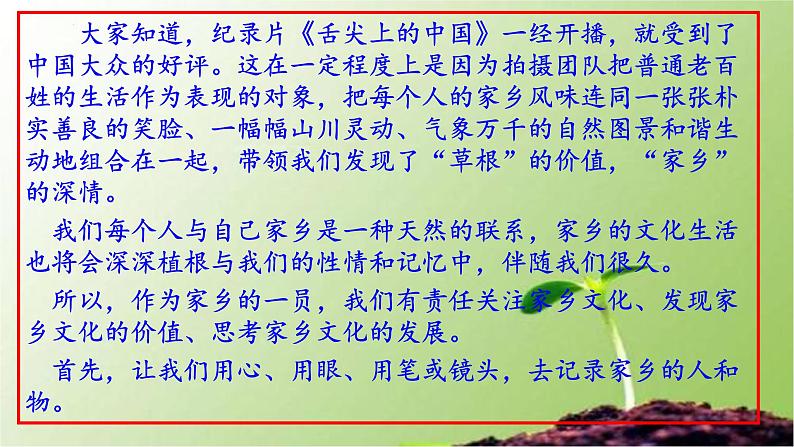 大家知道，纪录片《舌尖上的中国》一经开播，就受到了
中国大众的好评。这在一定程度上是因为拍摄团队把普通老百
姓的生活作为表现的对象，把每个人的家乡风味连同一张张朴
实善良的笑脸、一幅幅山川灵动、气象万千的自然图景和谐生
动地组合在一起，带领我们发现了“草根”的价值，“家乡”
的深情。
我们每个人与自己家乡是一种天然的联系，家乡的文化生活
也将会深深植根与我们的性情和记忆中，伴随我们很久。
所以，作为家乡的一员，我们有责任关注家乡文化、发现家
乡文化的价值、思考家乡文化的发展。
首先，让我们用心、用眼、用笔或镜头，去记录家乡的人和
物。